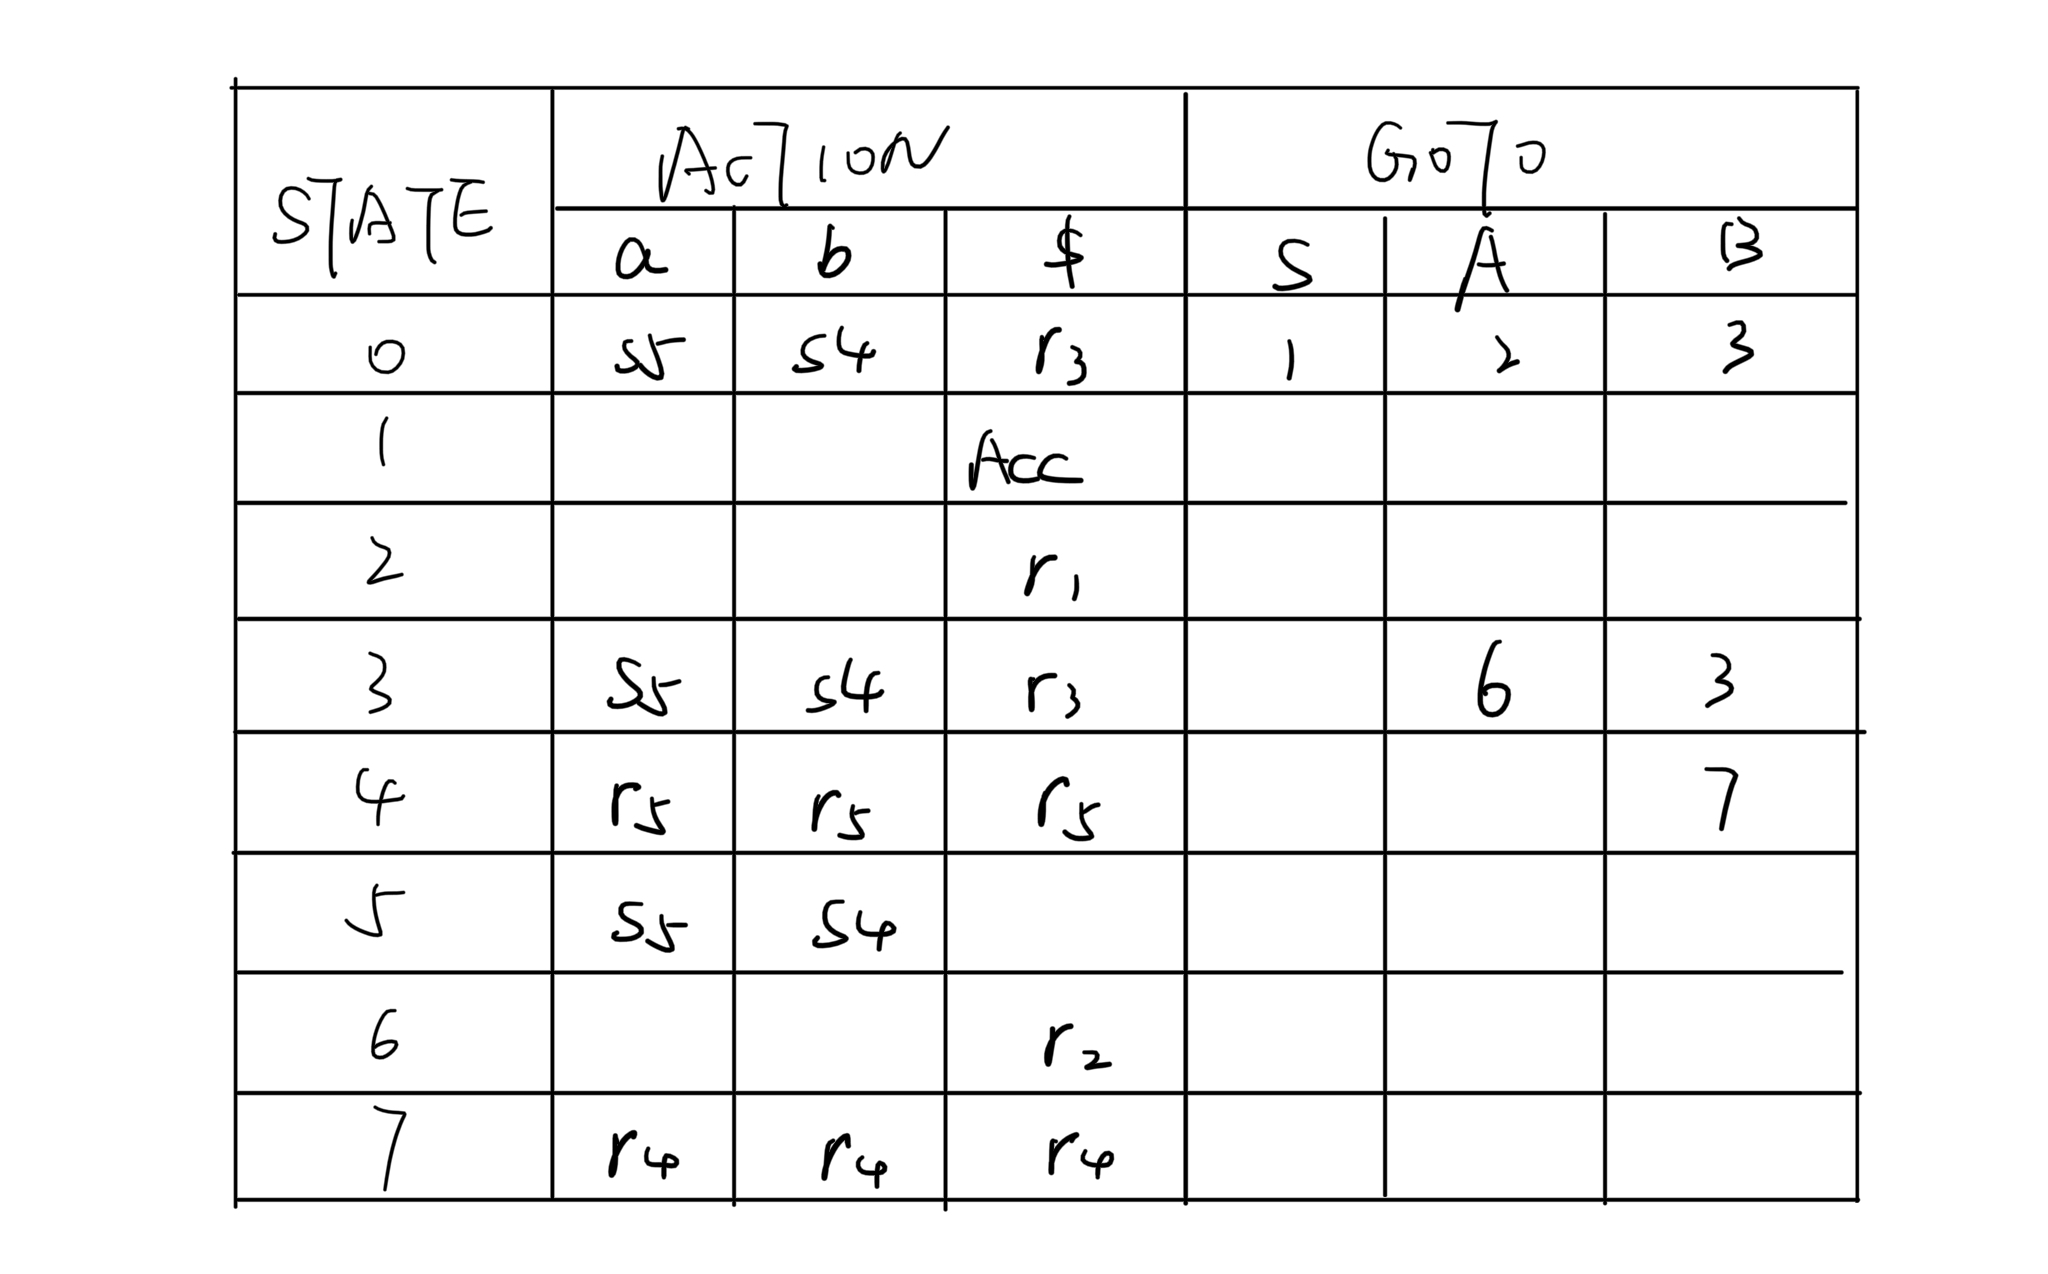 STATE ACTION GOTO
a b $ S A B
0 s5 s4 r3 1 2 3
1 Acc
2 r1
3 s5 s4 r3 6 3
4 r5 r5 r5 7
5 s5 s4
6 r2
7 r4 r4 r4